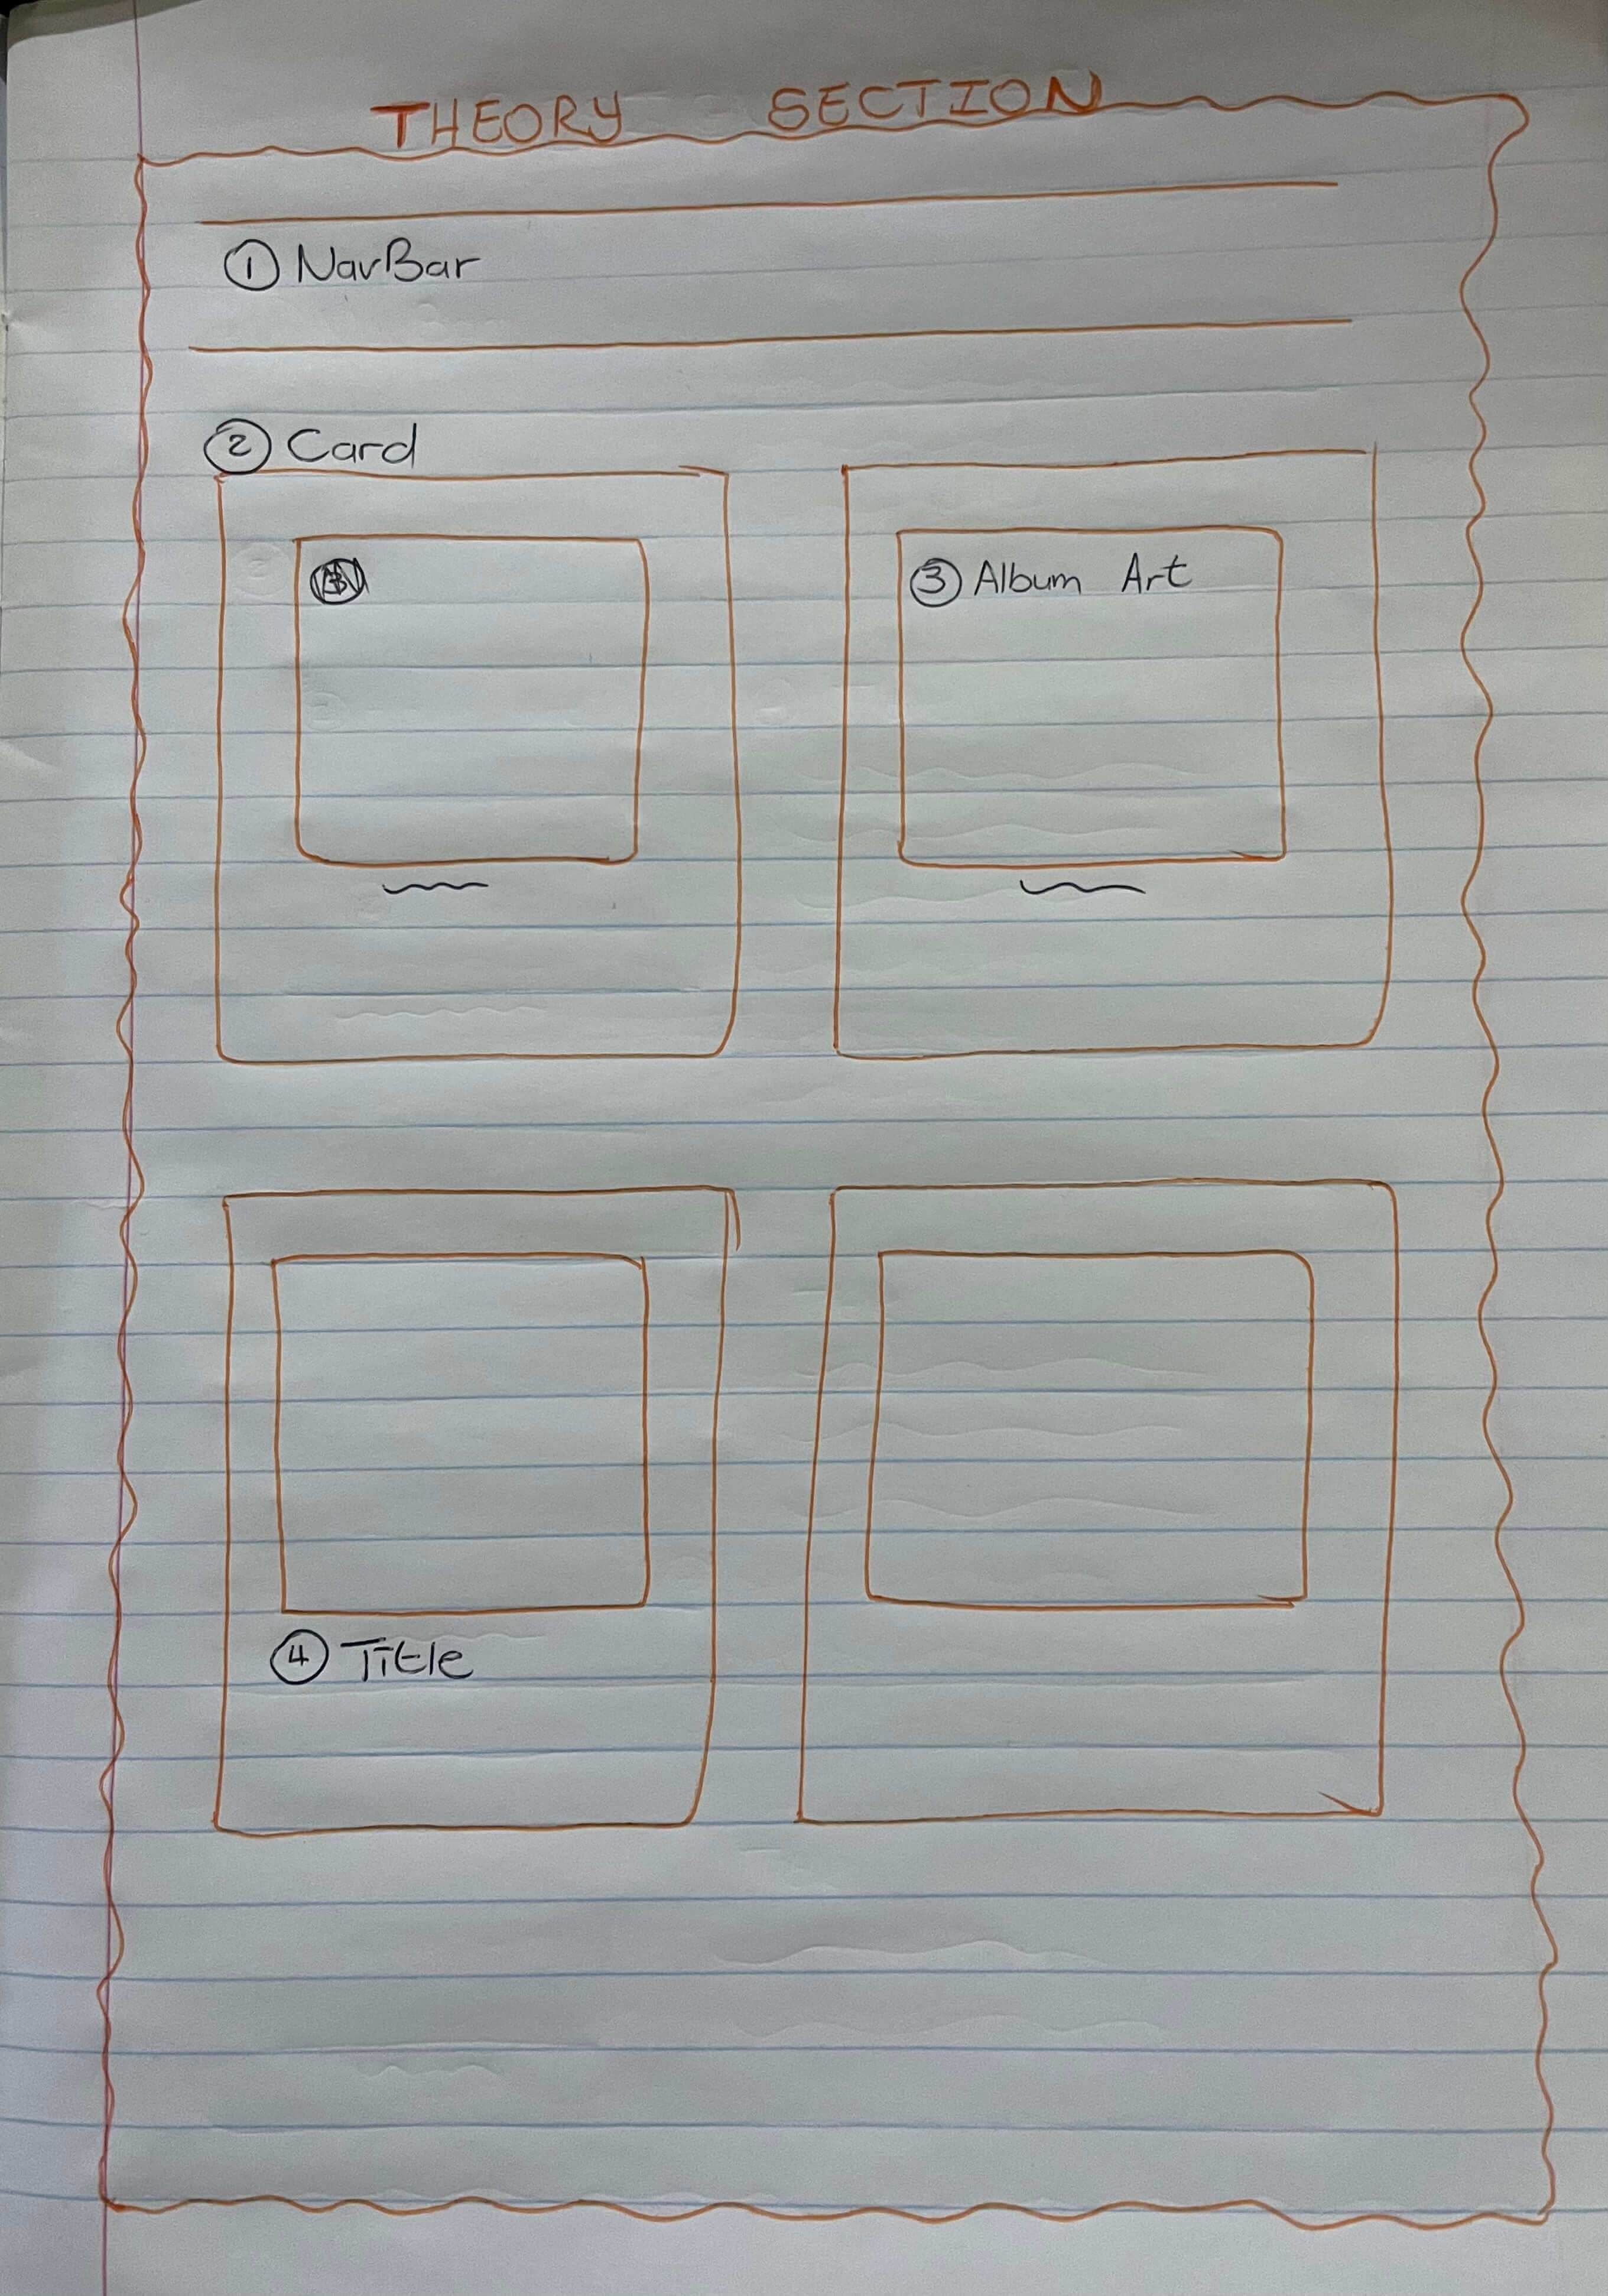 THEORY SECTION
① NavBar
② Card
③ Album Art
④ Title